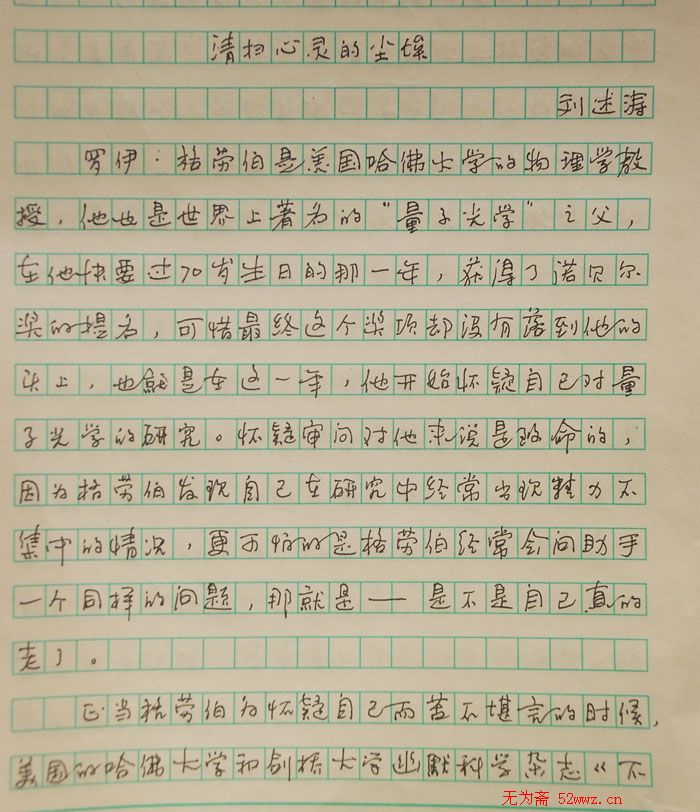 清扫心灵的尘埃
刘述涛
罗伊·格劳伯是美国哈佛大学的物理学教
授，他也是世界上著名的“量子光学”之父，
在他快要过70岁生日的那一年，获得了诺贝尔
奖的提名，可惜最终这个奖项却没有落到他的
头上，也就是在这一年，他开始怀疑自己对量
子光学的研究。怀疑审问对他来说是致命的，
因为格劳伯发现自己在研究中经常出现精力不
集中的情况，更可怕的是格劳伯经常会问助手
一个同样的问题，那就是——是不是自己真的
老了。
正当格劳伯为怀疑自己而苦不堪言的时候，
美国的哈佛大学和剑桥大学幽默科学杂志《不
无为斋 52wwz.cn